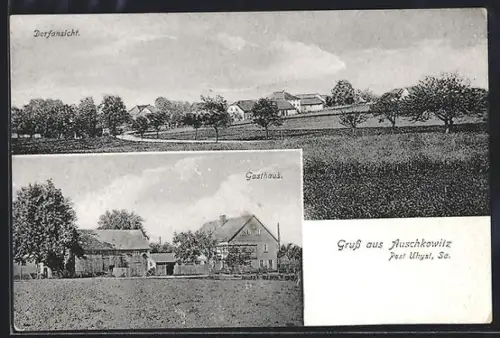 Dorfansicht.
Gasthaus.
Gruß aus Auschkowitz
Post Uhyst, Sa.